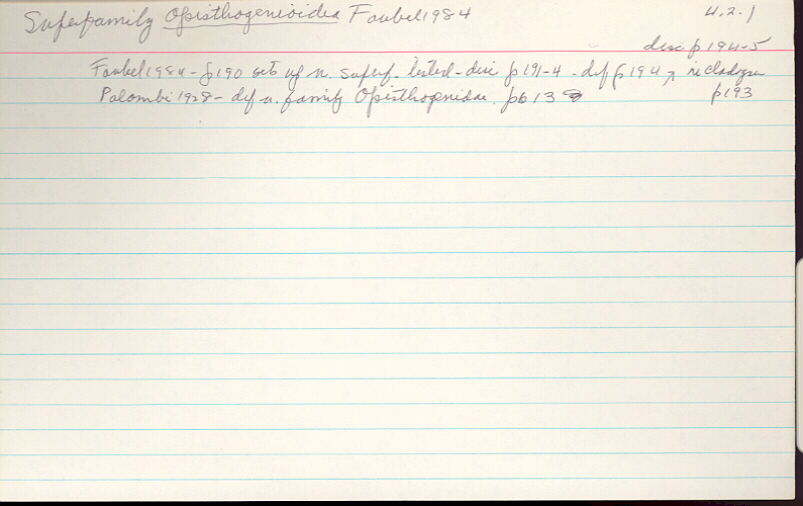 Superfamily Opisthogenioidea Faubel 1984 4.2.1
disc p 194-5
Faubel 1984 - p190 sets up n. superf. listed - disc p 191-4 - def p 194 ↗ re cladogram
Palombi 1928 - def n. family Opisthogenidae. p613 p193